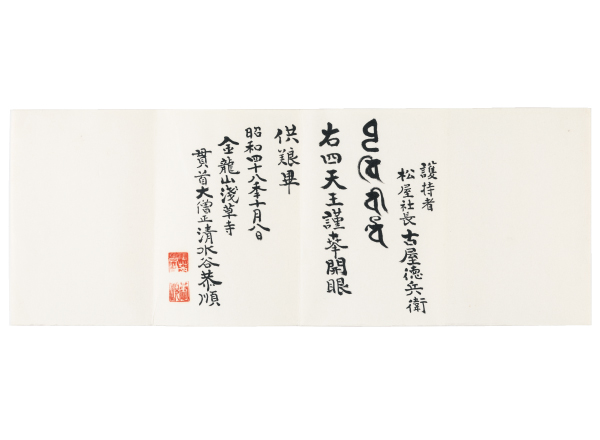 護持者
松屋社長古屋徳兵衛
右四天王謹奉開眼
供粮畢
昭和四十八年十月八日
金龍山浅草寺
貫首大僧正清水谷恭順